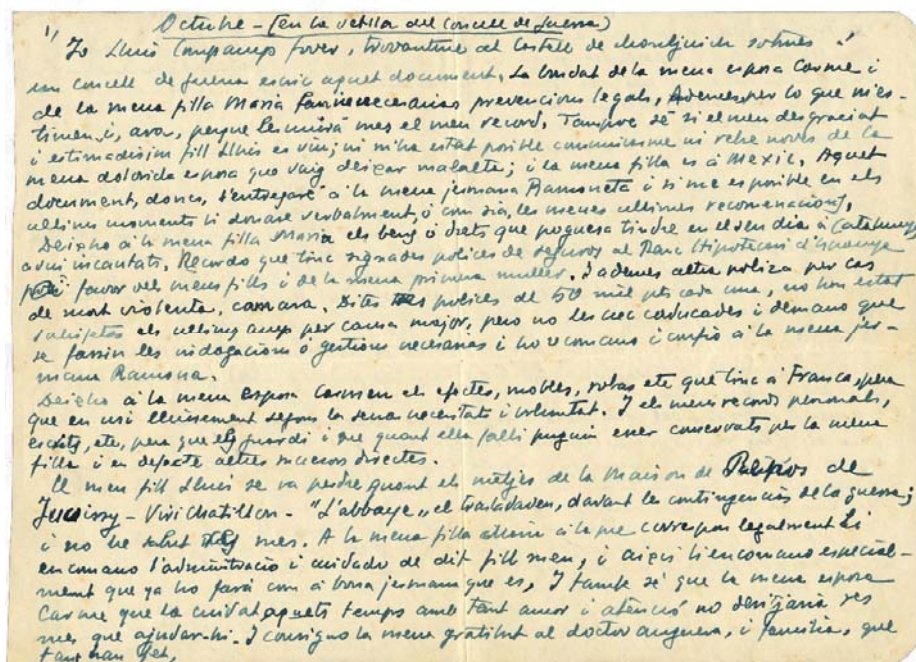 Octubre - (en la vetlla del Concell de Guerra)
1/ Jo Lluis Companys Jover, trovantme al Castell de Montjuich sotmes a
un concell de guerra escric aquet document. La bondat de la meva esposa Carme i
de la meva filla Maria fan inecesarias prevencions legals, Ademes per lo que m'es-
timen, i, ara, perque les unirà mes el meu record. Tampoc sé si el meu desgraciat
i estimadisim fill Lluis es viu; ni m'ha estat posible comunicarme ni rebre noves de la
meva dolorida esposa que vaig deixar malalta; i la meva filla es á Mexic. Aquet
document, donc, s'entregará á la meva jermana Ramoneta i si me es posible en els
ultims moments li donaré verbalment, ó com sia, les meves ultimes recomenacions.
Deixo á la meva filla Maria els bens ó drets que pogues tindre en el seu dia á Catalunya
avui incautats. Recordo que tinc signades polices de seguros al Banc Hipotecari d'Espanya
favor dels meus fills i de la meva primera muller. I ademes altra poliza per cas
de mort violenta, . Dites polices de 50 mil pts cada una, no han estat
els ultims anys per causa major, pero no les crec caducades i demano que
se fassin les indagacions ó gestions necesarias i ho recomano i confio á la meva jer-
mana Ramona.
Deixo á la meva esposa Carmen els efectes, mobles, robas etc que tinc á França, pera
que en usi lliurement segons la seva necesitats i voluntat. I els meus records personals,
escrits, etc, pera que els guardi i que quant ella falti puguin esser conservats per la meva
filla i en defecte altres sucesors directes.
El meu fill Lluis se va perdre quant els metjes de la Maison de Repos de
Juvissy - Viri Chatillon - "L'abbaye" el trasladaven, davant les contingencies de la guerra;
i no he sabut mes. A la meva filla i á lo que correspon legalment li
encomano l'administració i cuidado de dit fill meu, i aixis li encomano especial-
ment que ya ho fará com á bona jermana que es. I tambe sé que la meva esposa
Carme que la cuidat aquets temps amb tant amor i atenció no desitjaria res
mes que ajudar-hi. I consigno la meva gratitut al doctor anguera, i familia, que
tant han fet.